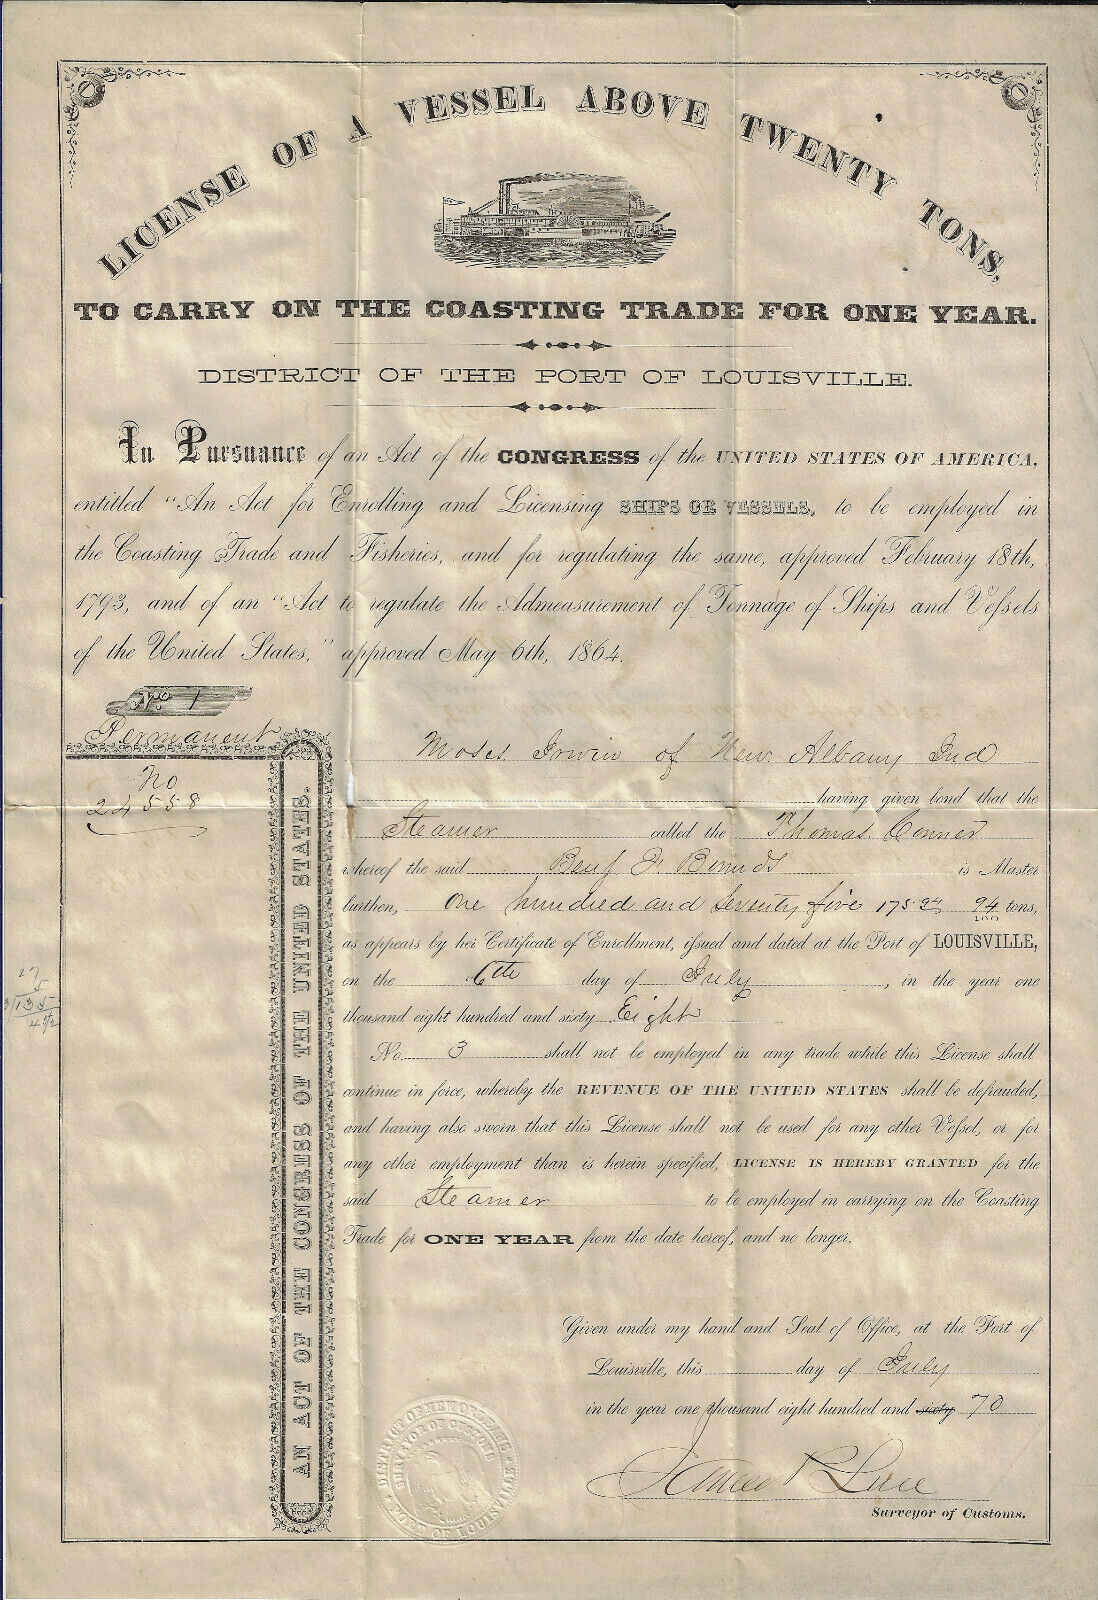 LICENSE OF A VESSEL ABOVE TWENTY TONS,
TO CARRY ON THE COASTING TRADE FOR ONE YEAR.
DISTRICT OF THE PORT OF LOUISVILLE.
In Pursuance of an Act of the CONGRESS of the UNITED STATES OF AMERICA,
entitled "An Act for Enrolling and Licensing SHIPS OR VESSELS, to be employed in
the Coasting Trade and Fisheries, and for regulating the same, approved February 18th,
1793, and of an "Act to regulate the Admeasurement of Tonnage of Ships and Vessels
of the United States," approved May 6th, 1864.
No. 1
Permanent
No
24558
AN ACT OF THE CONGRESS OF THE UNITED STATES.
Moses Irwin of New Albany Ind
having given bond that the
Steamer called the Thomas Conner
whereof the said Benj F. is Master
burthen, One hundred and Seventy five 175 94/100 tons,
as appears by her Certificate of Enrollment, issued and dated at the Port of LOUISVILLE,
on the 6th day of July, in the year one
thousand eight hundred and sixty Eight
No. 3 shall not be employed in any trade while this License shall
continue in force, whereby the REVENUE OF THE UNITED STATES shall be defrauded,
and having also sworn that this License shall not be used for any other Vessel, or for
any other employment than is herein specified, LICENSE IS HEREBY GRANTED for the
said Steamer to be employed in carrying on the Coasting
Trade for ONE YEAR from the date hereof, and no longer.
Given under my hand and Seal of Office, at the Port of
Louisville, this day of July
in the year one thousand eight hundred and sixty 70
Surveyor of Customs.
DISTRICT OF NEW ORLEANS
SURVEYOR OF CUSTOMS
PORT OF LOUISVILLE
27
5
135